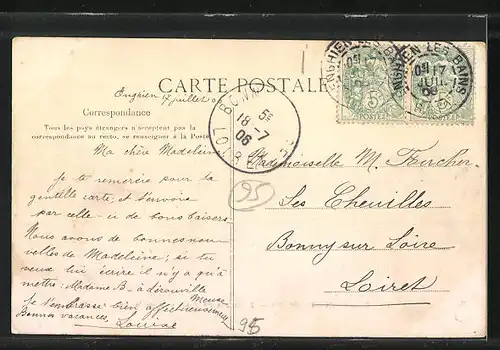 CARTE POSTALE
Enghien 17 juillet
Correspondance
Tous les pays étrangers n'acceptent pas la
correspondance au recto, se renseigner à la Poste
Ma chère Madeleine
je te remercie pour la
gentille carte, et t'envoie
par celle-ci de bons baisers.
Nous avons de bonnes nou-
velles de Madeleine; si tu
veux lui écrire il n'y a qu'à
mettre: Madame B- à
Meuse
Je t'embrasse bien affectueusement
Bonnes vacances,
Louise
ENGHIEN LES BAINS
17
JUIL
06
5
POSTES
ENGHIEN LES BAINS
17
JUIL
06
BONNY
5E
18-7
06
LOIRET
Mademoiselle M.
Les Chenilles
Bonny sur Loire
Loiret
95
95